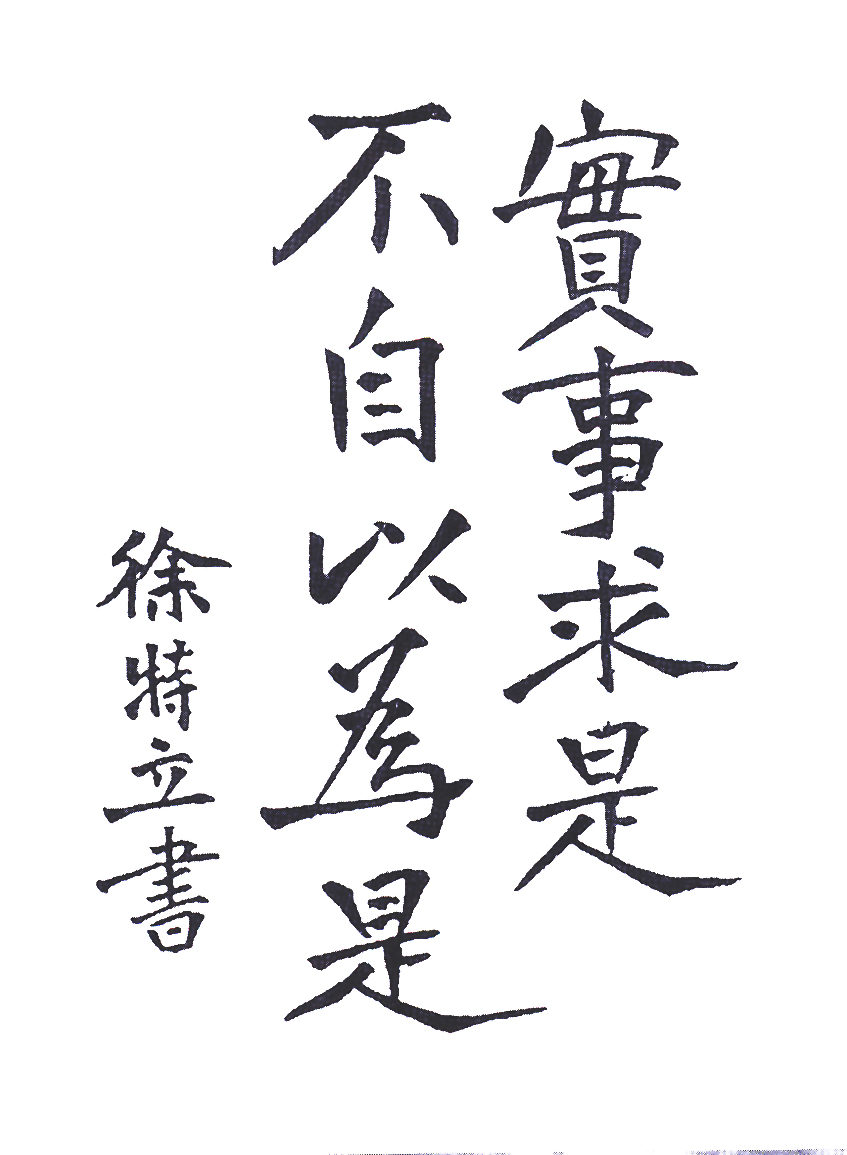 實事求是
不自以為是
徐特立書